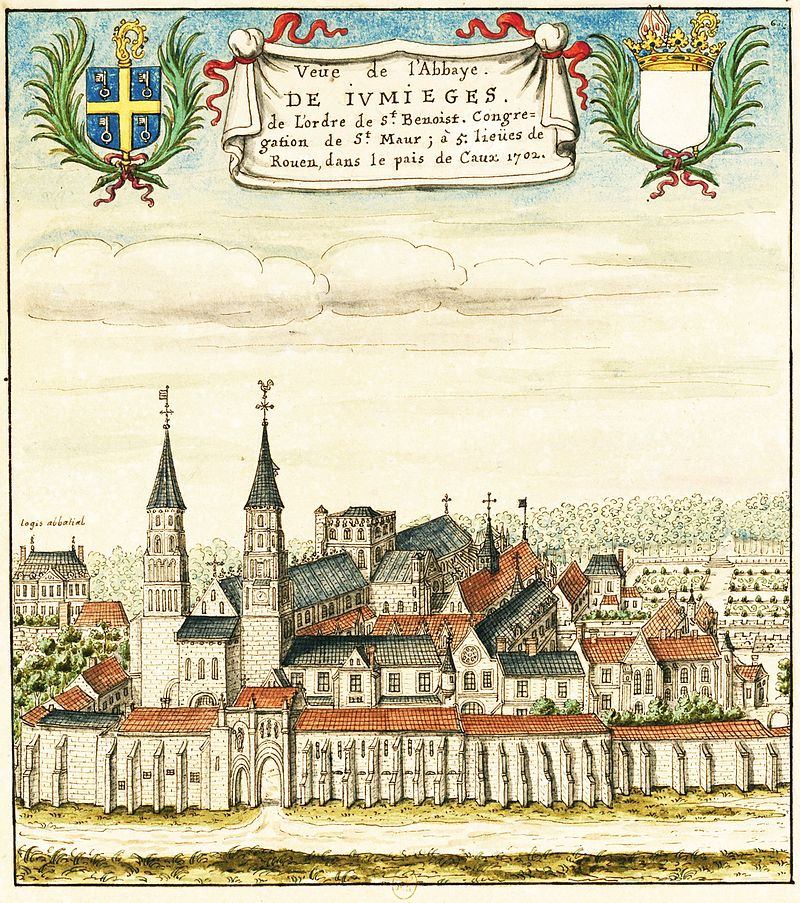 Veue de l'Abbaye.
DE IVMIEGES.
de L'ordre de S.t Benoist. Congre=
gation de S.t Maur; à 5. lieües de
Rouen, dans le païs de Caux 1702.
6.
logis abbatial